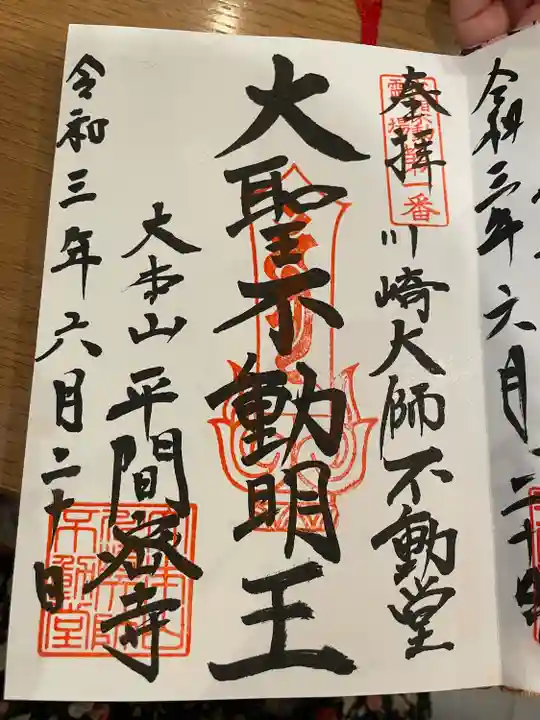 令和三年六月二十日
奉拝
川崎大師不動堂
大聖不動明王
大本山平間寺
令和三年六月二十日